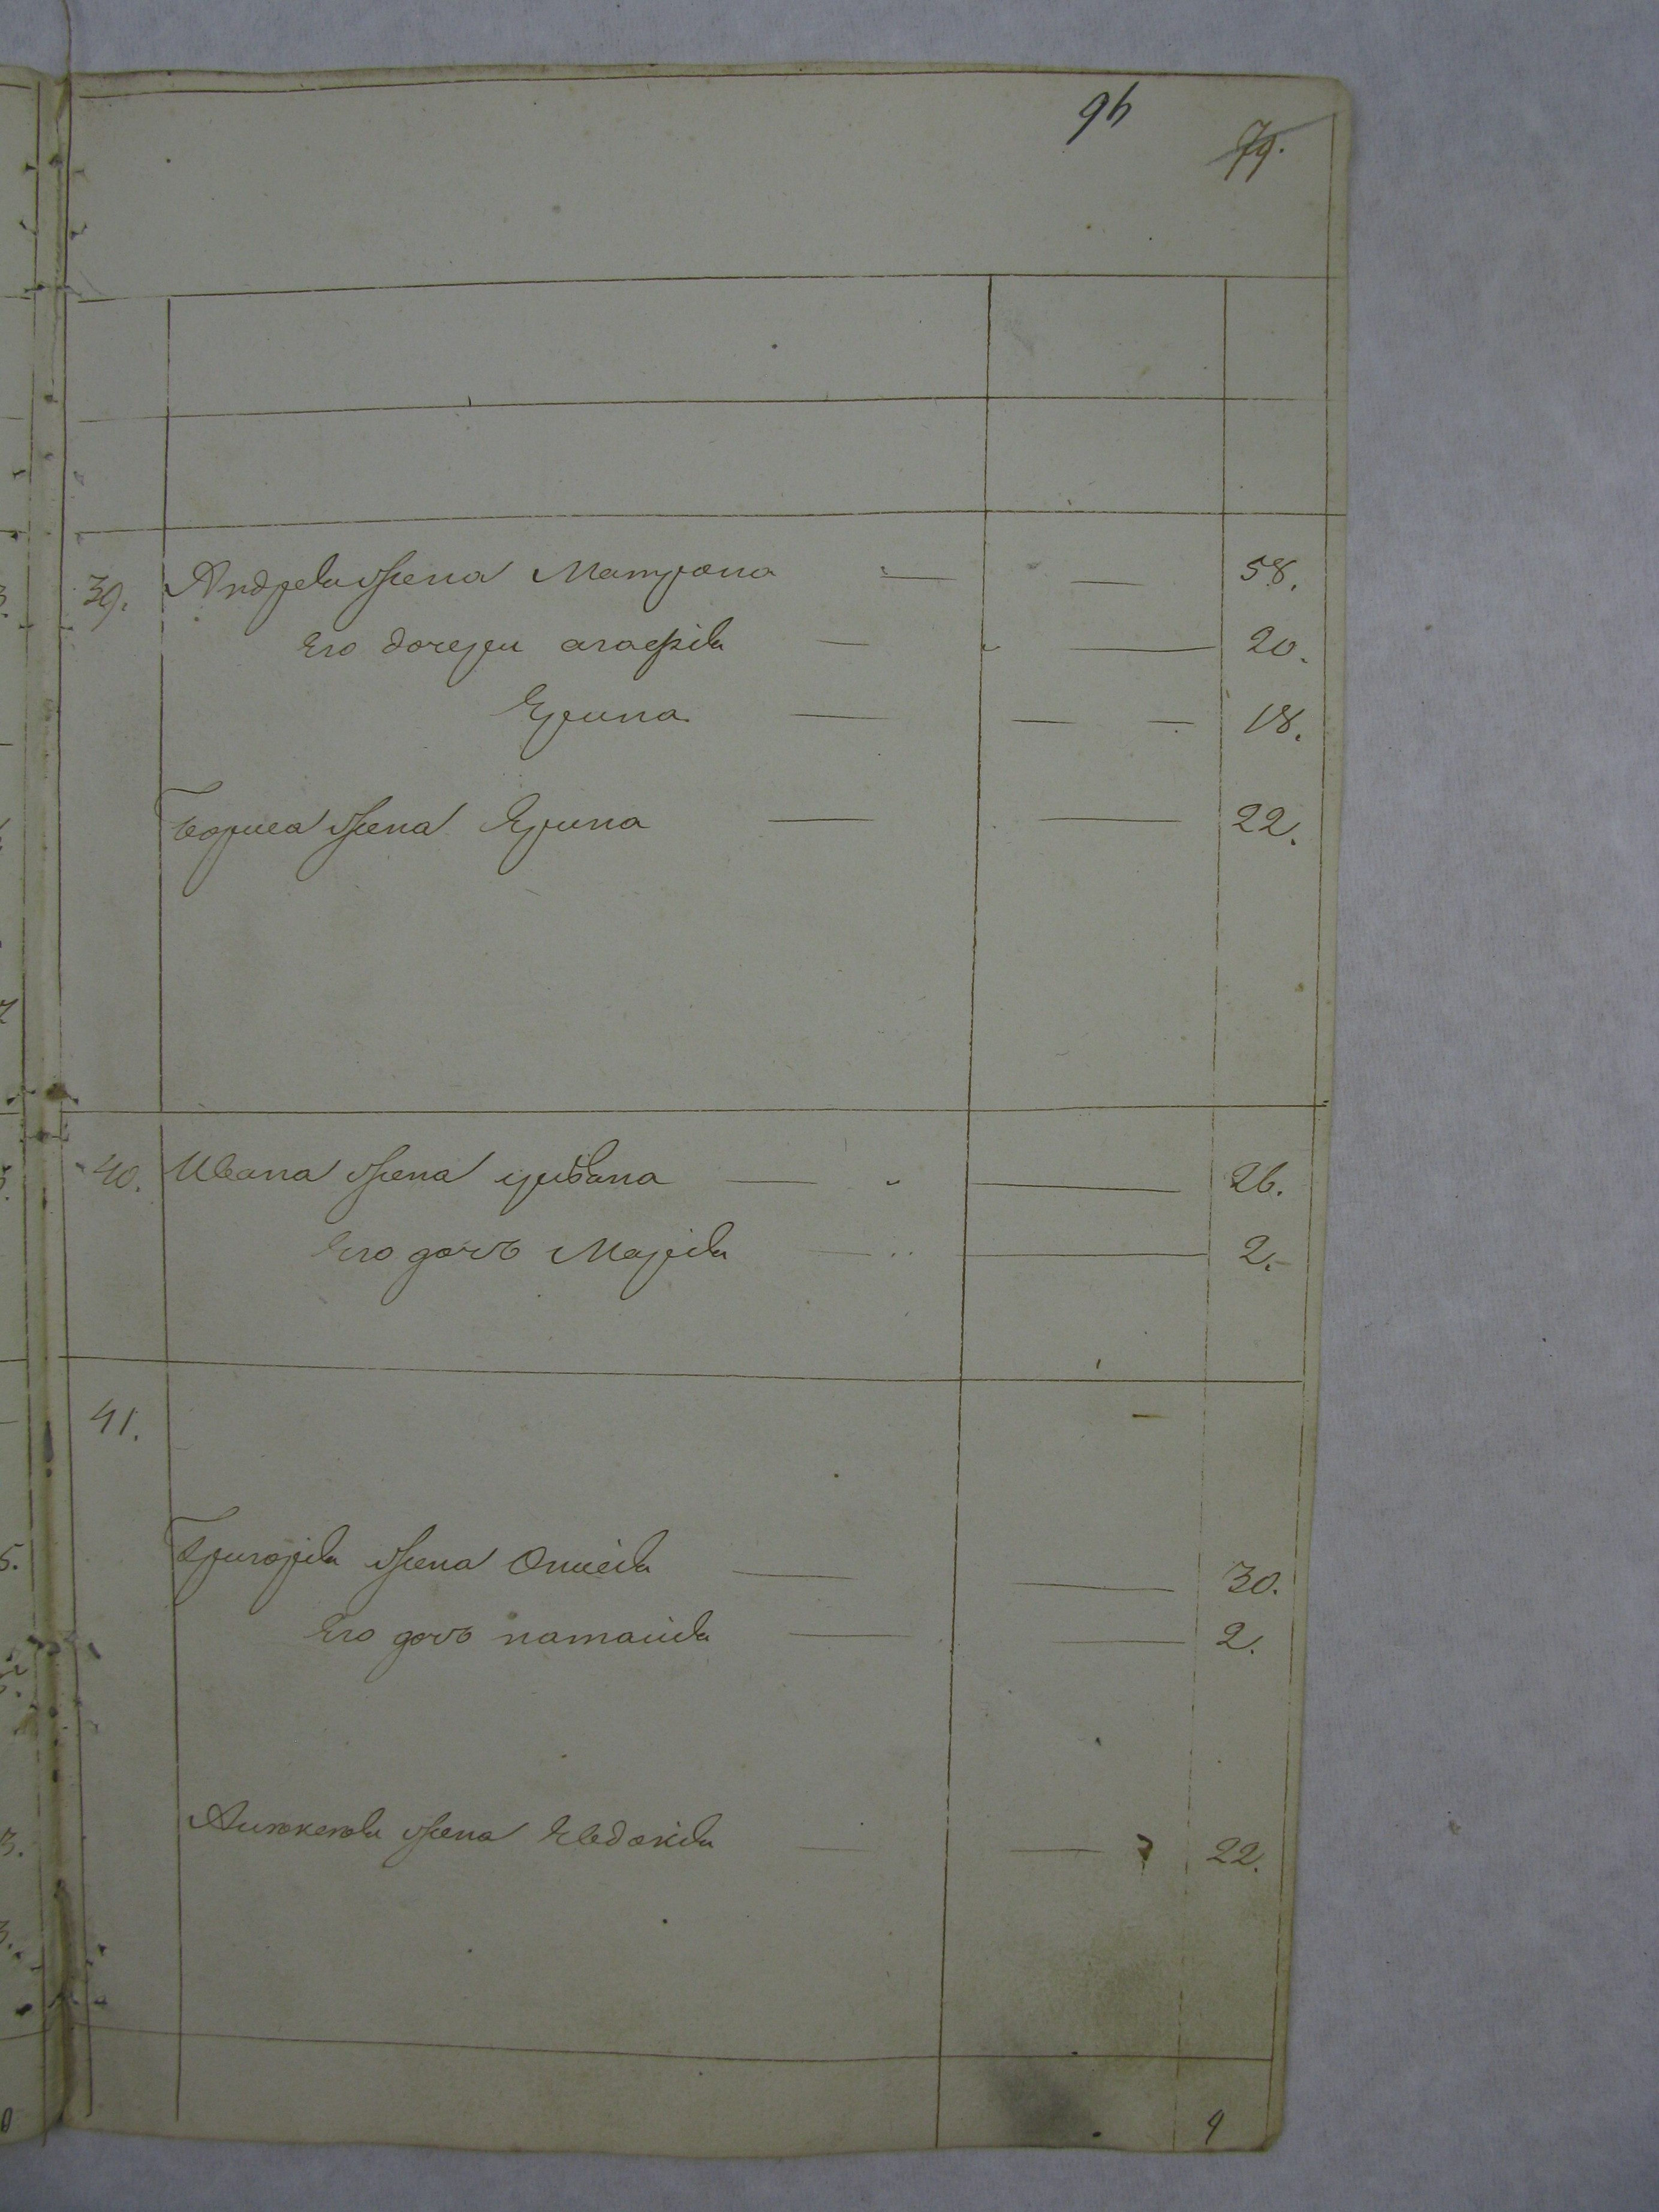 94
79.
39. Андрея жена Матрона — — 58.
Его дочери агафія — — 20.
Ерина — — — 18.
Бориса жена Ерина — — 22.
40. Ивана жена — — 26.
Его дочь Марія — — 2.
41.
Григорія жена — — 30.
Его дочь наталія — — 2.
жена Евдокія — — 22.
9